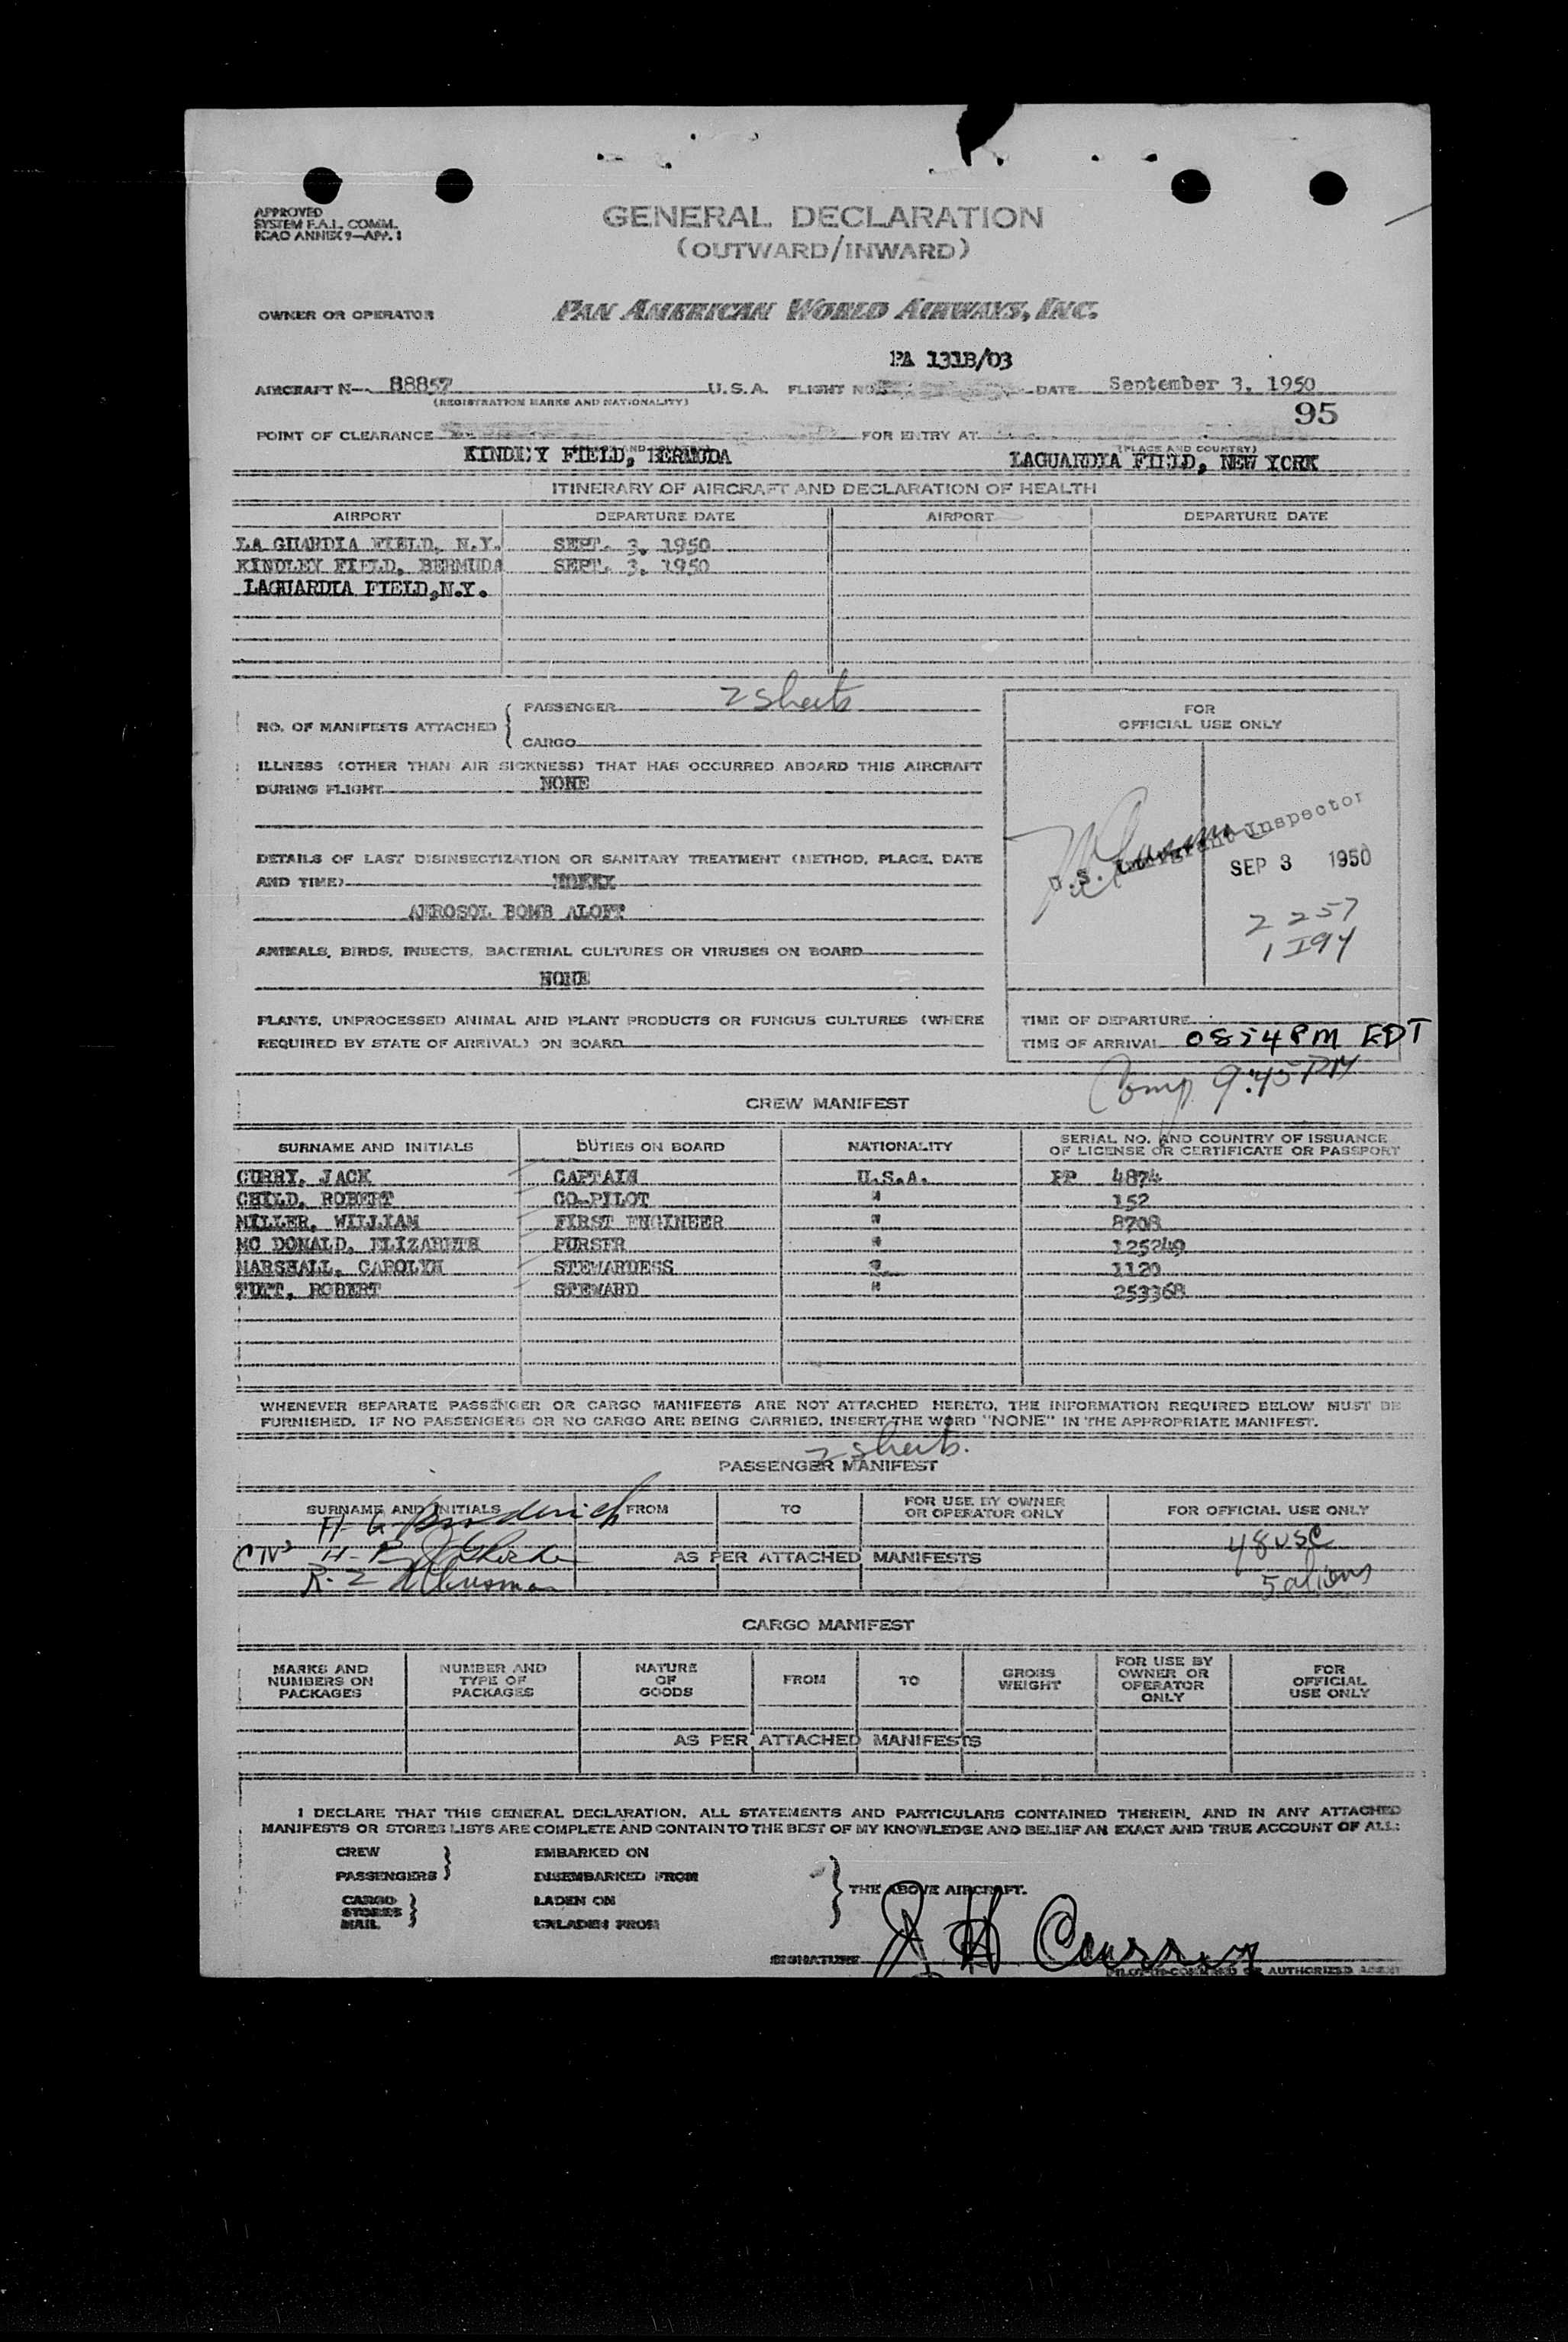 APPROVED
SYSTEM F.A.L. COMM.
ICAO ANNEX 9—APP. 1
GENERAL DECLARATION
(OUTWARD/INWARD)
OWNER OR OPERATOR PAN AMERICAN WORLD AIRWAYS, INC.
PA 131B/03
AIRCRAFT N— 88857 U.S.A. FLIGHT NO. DATE September 3, 1950
(REGISTRATION MARKS AND NATIONALITY)
95
POINT OF CLEARANCE FOR ENTRY AT
(PLACE AND COUNTRY)
KINDLEY FIELD, BERMUDA LAGUARDIA FIELD, NEW YORK
ITINERARY OF AIRCRAFT AND DECLARATION OF HEALTH
AIRPORT DEPARTURE DATE AIRPORT DEPARTURE DATE
LA GUARDIA FIELD, N.Y. SEPT. 3, 1950
KINDLEY FIELD, BERMUDA SEPT. 3, 1950
LAGUARDIA FIELD,N.Y.
NO. OF MANIFESTS ATTACHED
PASSENGER 2 sheets
CARGO
ILLNESS (OTHER THAN AIR SICKNESS) THAT HAS OCCURRED ABOARD THIS AIRCRAFT
DURING FLIGHT NONE
DETAILS OF LAST DISINSECTIZATION OR SANITARY TREATMENT (METHOD, PLACE, DATE
AND TIME)
AEROSOL BOMB ALOFT
ANIMALS, BIRDS, INSECTS, BACTERIAL CULTURES OR VIRUSES ON BOARD
NONE
PLANTS, UNPROCESSED ANIMAL AND PLANT PRODUCTS OR FUNGUS CULTURES (WHERE
REQUIRED BY STATE OF ARRIVAL) ON BOARD
FOR
OFFICIAL USE ONLY
U.S. Immigrant Inspector
SEP 3 1950
2 257
1 I94
TIME OF DEPARTURE
TIME OF ARRIVAL 0854 PM EDT
Comp 9:45 PM
CREW MANIFEST
SURNAME AND INITIALS DUTIES ON BOARD NATIONALITY SERIAL NO. AND COUNTRY OF ISSUANCE
OF LICENSE OR CERTIFICATE OR PASSPORT
CURRY, JACK CAPTAIN U.S.A. PP 4874
CHILD, ROBERT CO-PILOT " 152
MILLER, WILLIAM FIRST ENGINEER " 8708
MC DONALD, ELIZABETH PURSER " 125249
MARSHALL, CAROLYN STEWARDESS " 1120
TUTT, ROBERT STEWARD " 253368
WHENEVER SEPARATE PASSENGER OR CARGO MANIFESTS ARE NOT ATTACHED HERETO, THE INFORMATION REQUIRED BELOW MUST BE
FURNISHED. IF NO PASSENGERS OR NO CARGO ARE BEING CARRIED, INSERT THE WORD "NONE" IN THE APPROPRIATE MANIFEST.
2 sheets.
PASSENGER MANIFEST
SURNAME AND INITIALS FROM TO FOR USE BY OWNER
OR OPERATOR ONLY FOR OFFICIAL USE ONLY
AS PER ATTACHED MANIFESTS
48 USC
5 aliens
CARGO MANIFEST
MARKS AND
NUMBERS ON
PACKAGES
NUMBER AND
TYPE OF
PACKAGES
NATURE
OF
GOODS
FROM
TO
GROSS
WEIGHT
FOR USE BY
OWNER OR
OPERATOR
ONLY
FOR
OFFICIAL
USE ONLY
AS PER ATTACHED MANIFESTS
I DECLARE THAT THIS GENERAL DECLARATION, ALL STATEMENTS AND PARTICULARS CONTAINED THEREIN, AND IN ANY ATTACHED
MANIFESTS OR STORES LISTS ARE COMPLETE AND CONTAIN TO THE BEST OF MY KNOWLEDGE AND BELIEF AN EXACT AND TRUE ACCOUNT OF ALL:
CREW EMBARKED ON
PASSENGERS DISEMBARKED FROM
THE ABOVE AIRCRAFT.
CARGO LADEN ON
STORES
MAIL UNLADEN FROM
SIGNATURE J H Curry
PILOT-IN-COMMAND OR AUTHORIZED AGENT